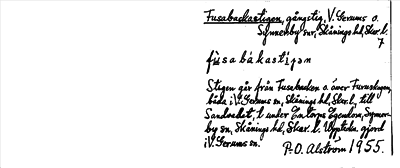 Fusabackastigen, gångstig, V. Gerums o.
Synnerby snr, Skånings hd, Skar. l.
7
fùsabákastiǥən
Stigen går från Fusabacken o. över Furuskogen,
båda i V. Gerums sn, Skånings hd, Skar. l., till
Sandvadet, l. under Egendom, Synner-
by sn, Skånings hd, Skar. l. Uppteckn. gjord
i V. Gerums sn.
P.-O. Alström 1955.